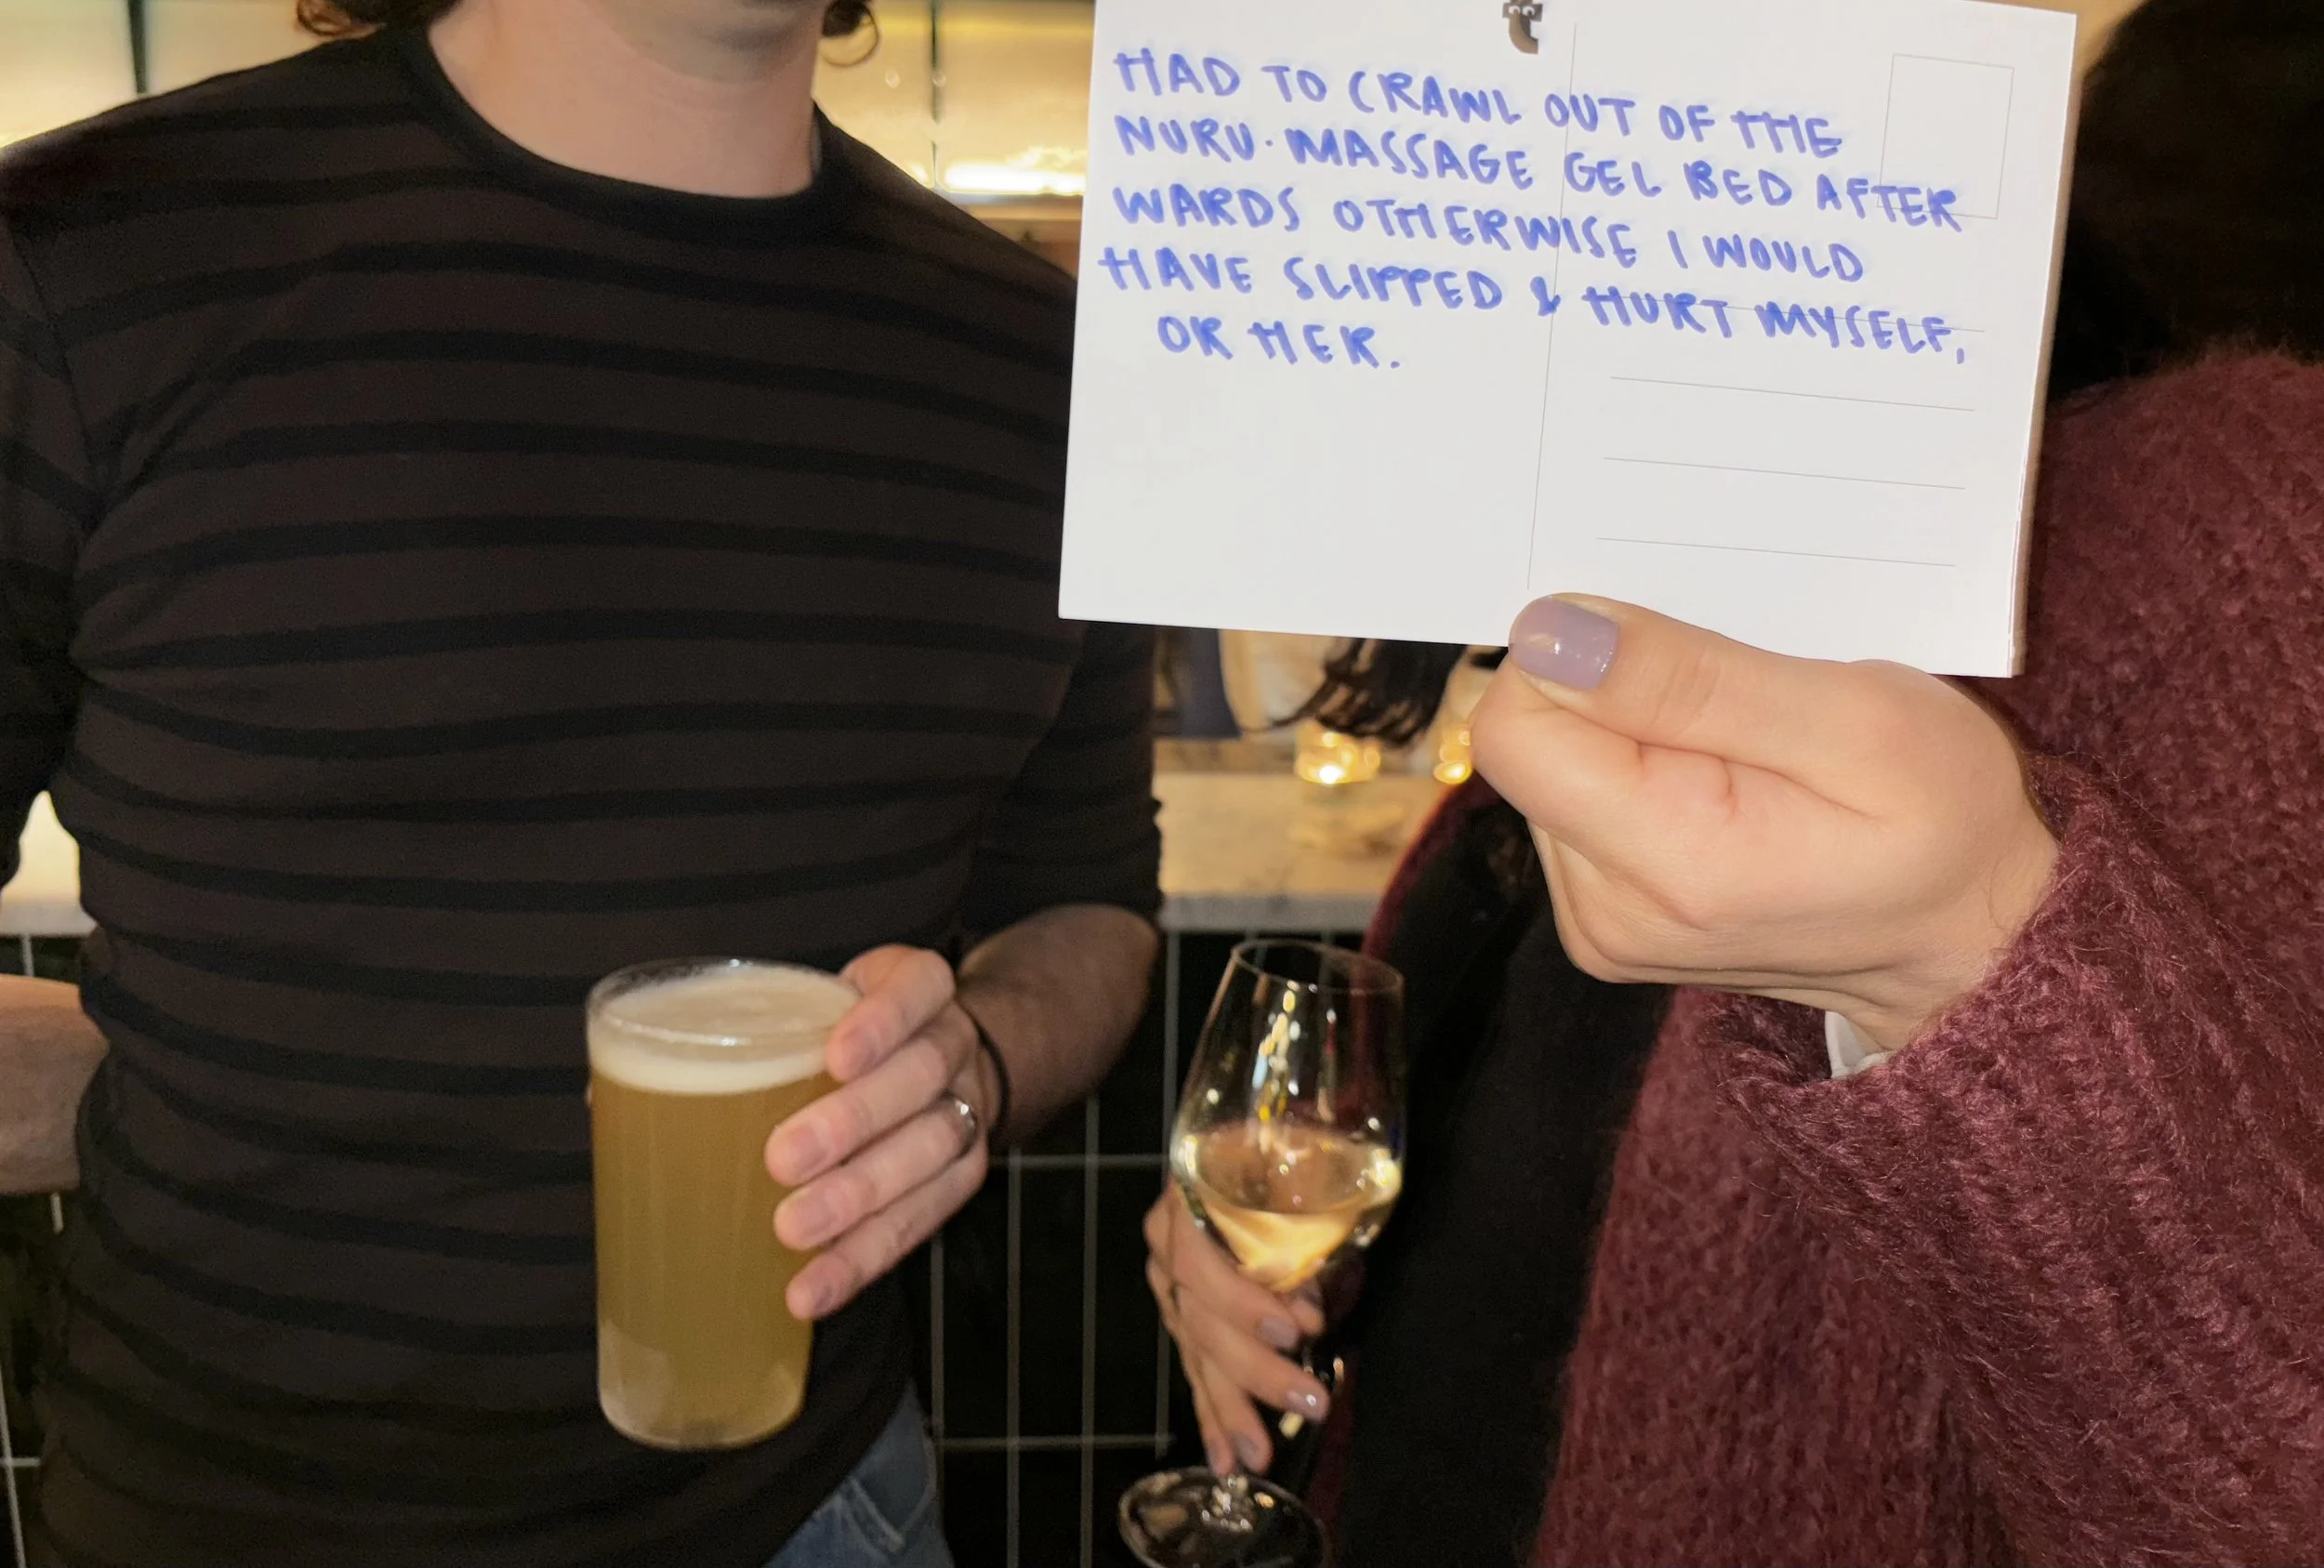 HAD TO CRAWL OUT OF THE
NURU-MASSAGE GEL BED AFTER
WARDS OTHERWISE I WOULD
HAVE SLIPPED & HURT MYSELF,
OR HER.